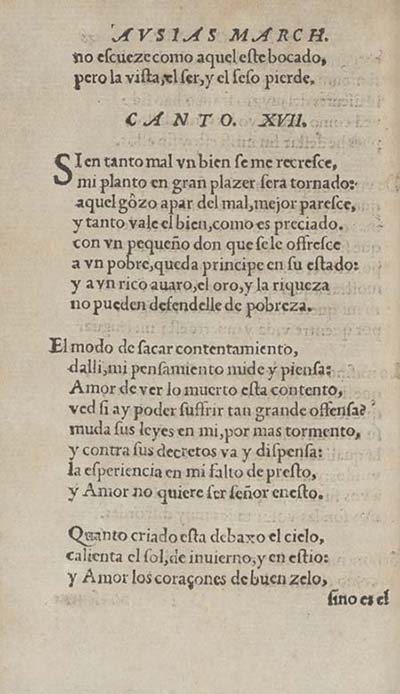 AVSIAS MARCH.
no escueze como aquel este bocado,
pero la vista, el ser, y el seso pierde.
CANTO. XVII.
SI en tanto mal vn bien se me recresce,
mi planto en gran plazer sera tornado:
aquel gôzo apar del mal, mejor paresce,
y tanto vale el bien, como es preciado.
con vn pequeño don que se le offresce
a vn pobre, queda principe en su estado:
y a vn rico auaro, el oro, y la riqueza
no pueden defendelle de pobreza.
El modo de sacar contentamiento,
dalli, mi pensamiento mide y piensa:
Amor de ver lo muerto esta contento,
ved si ay poder suffrir tan grande offensa?
muda sus leyes en mi, por mas tormento,
y contra sus decretos va y dispensa:
la esperiencia en mi falto de presto,
y Amor no quiere ser señor en esto.
Quanto criado esta debaxo el cielo,
calienta el sol, de inuierno, y en estio:
y Amor los coraçones de buen zelo,
sino es el